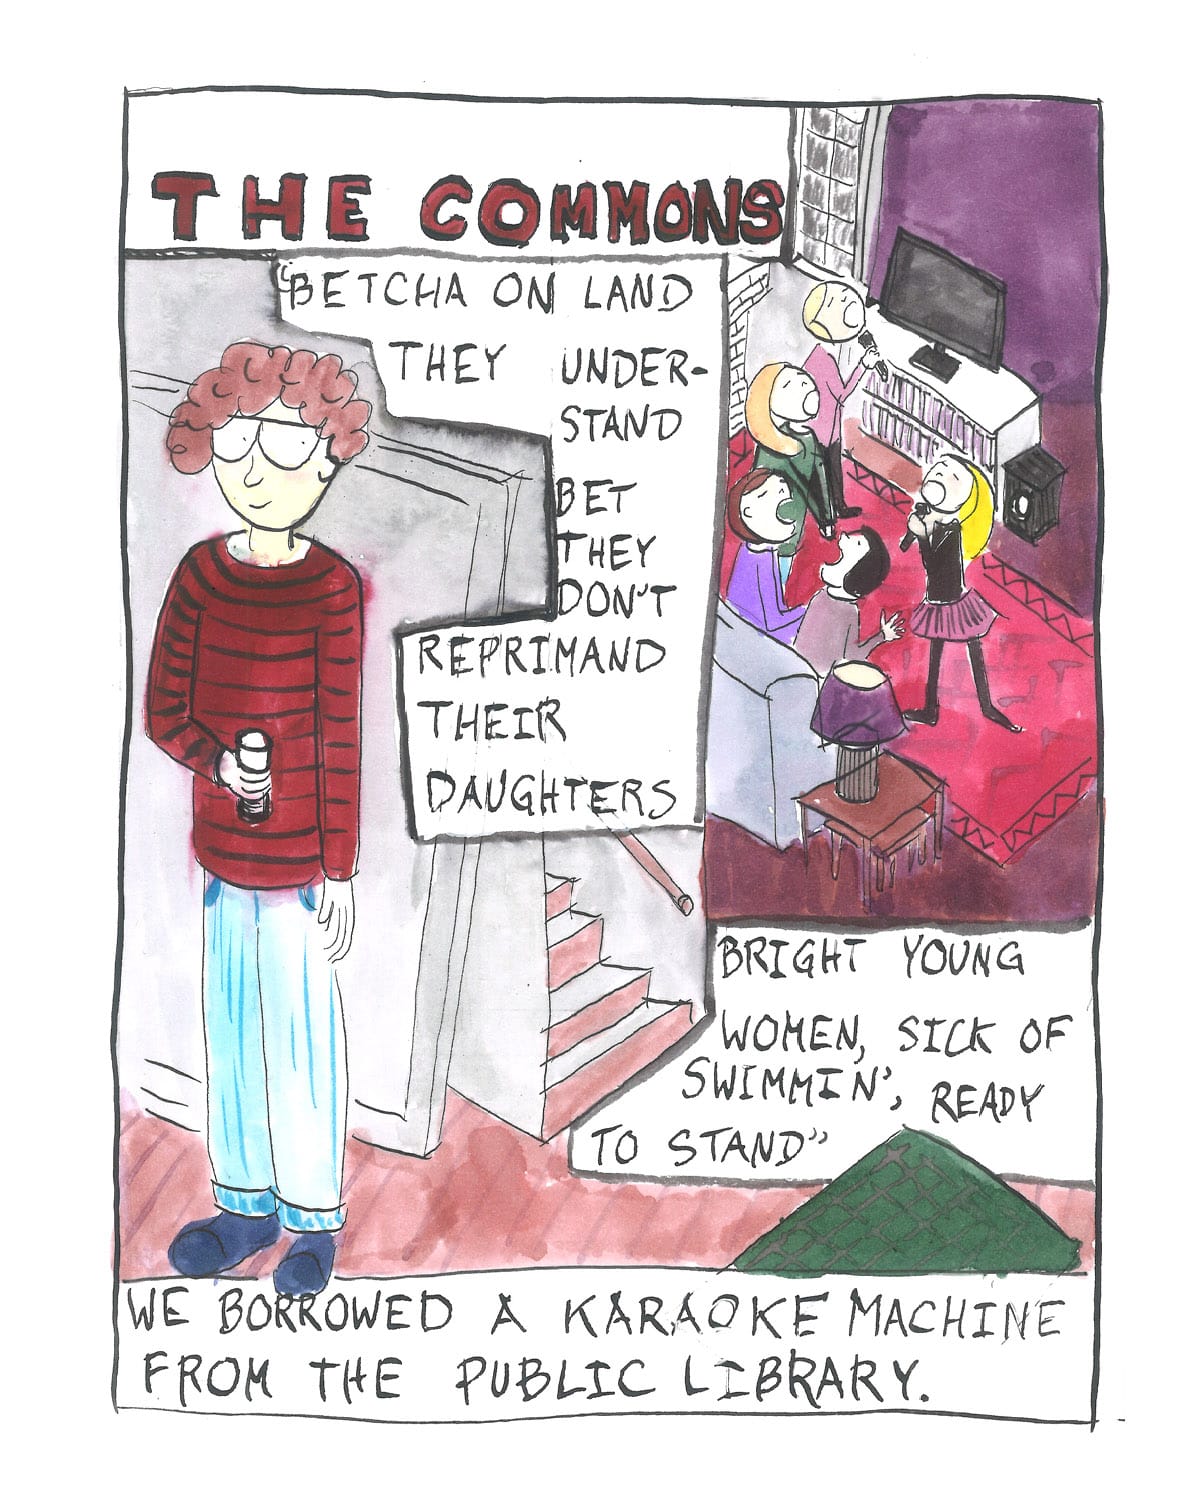 THE COMMONS
"BETCHA ON LAND
THEY UNDER-
STAND
BET
THEY
DON'T
REPRIMAND
THEIR
DAUGHTERS
BRIGHT YOUNG
WOMEN, SICK OF
SWIMMIN', READY
TO STAND"
WE BORROWED A KARAOKE MACHINE
FROM THE PUBLIC LIBRARY.